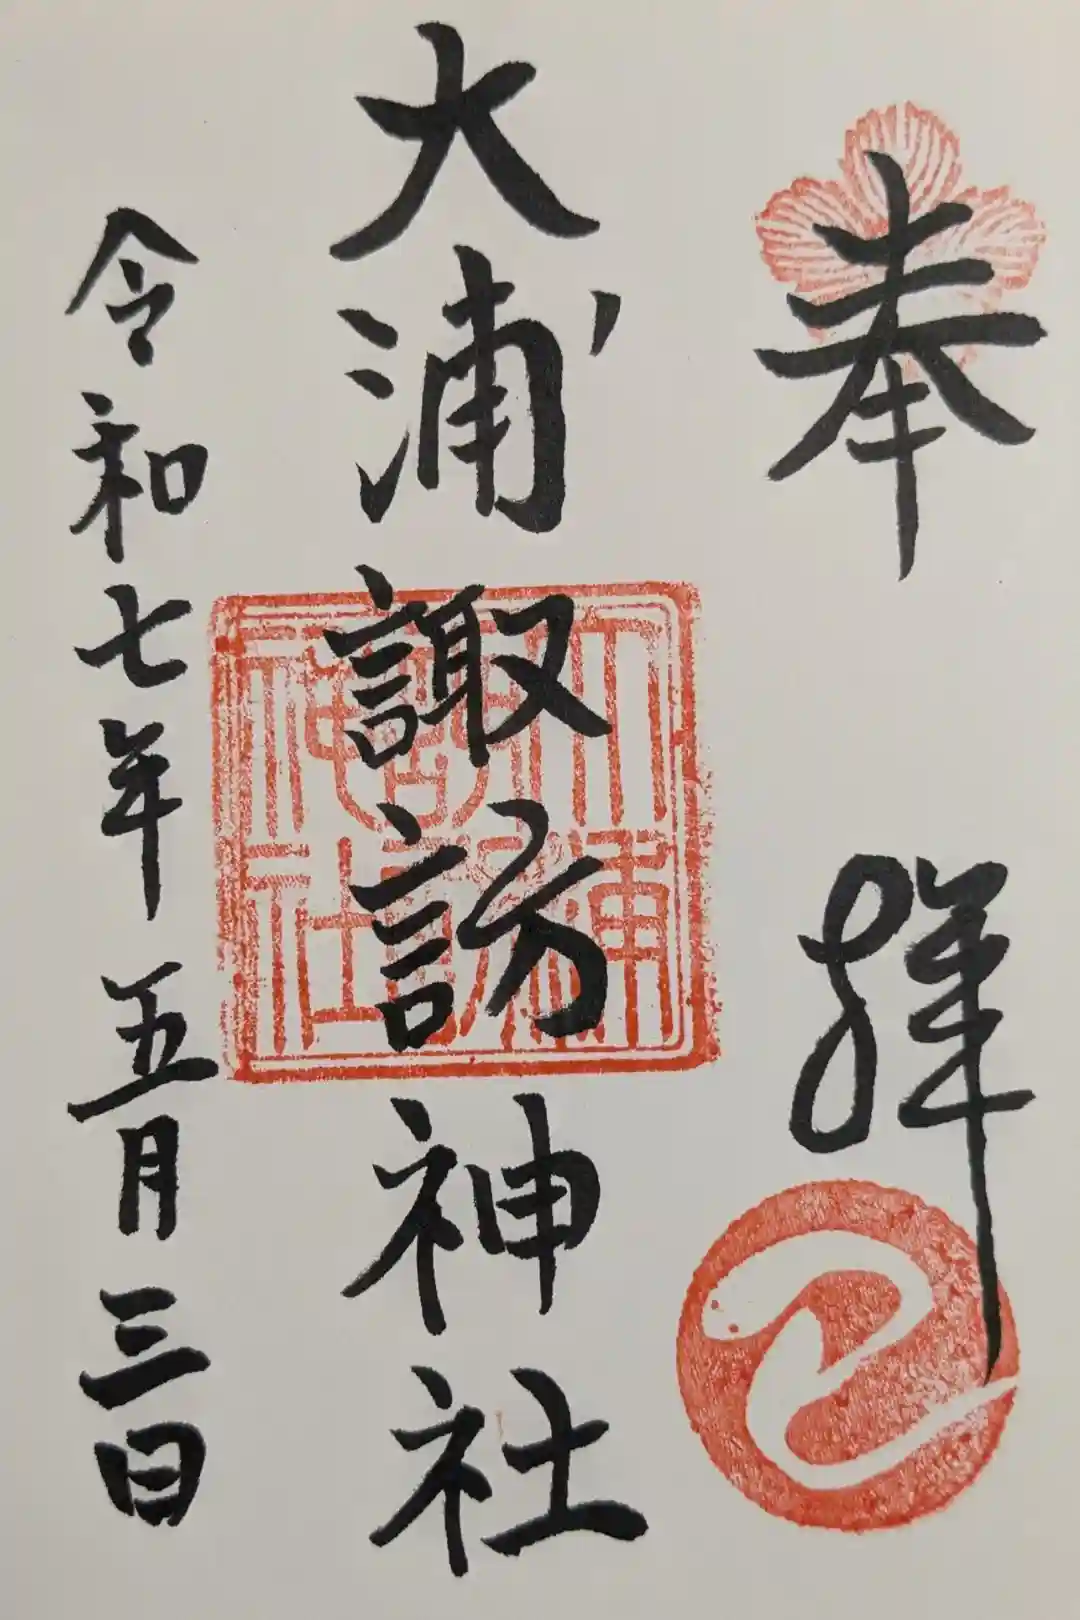 奉拝
大浦諏訪神社
大浦諏訪神社
令和七年五月三日